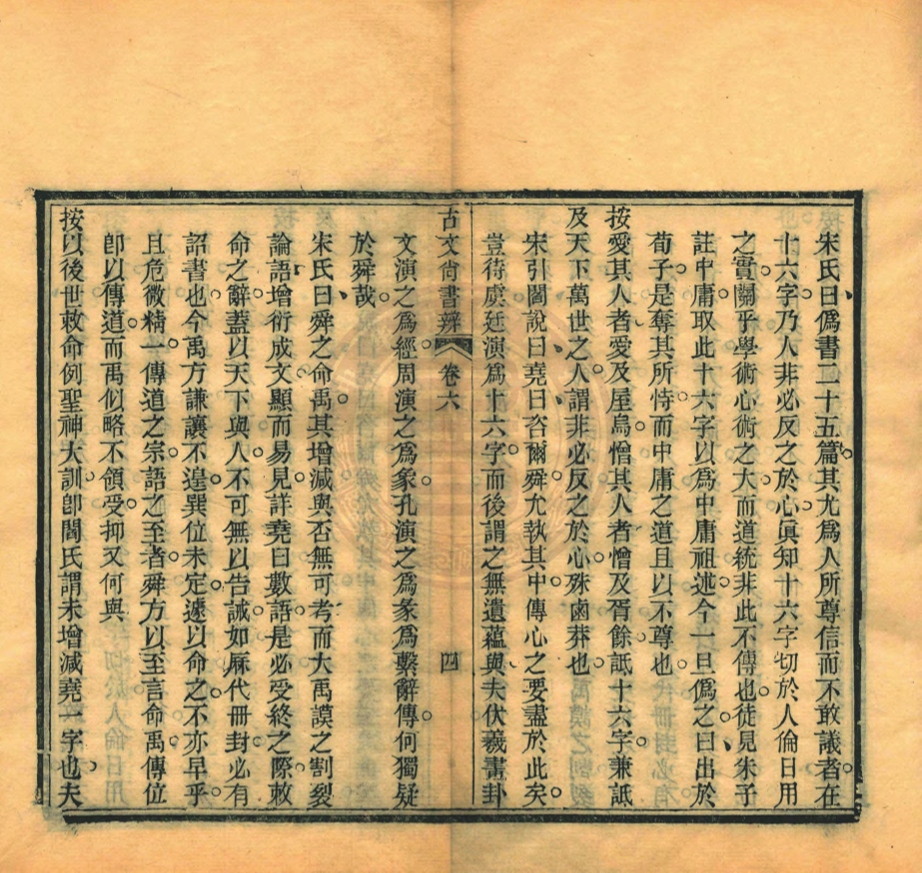 宋氏曰僞書二十五篇其尤爲人所尊信而不敢議者在
十六字乃人非必反之於心眞知十六字切於人倫日用
之實關乎學術心術之大而道統非此不傳也徒見朱子
註中庸取此十六字以爲中庸祖述今一旦僞之曰出於
荀子是奪其所恃而中庸之道且以不尊也
按愛其人者愛及屋烏憎其人者憎及胥餘詆十六字兼詆
及天下萬世之人謂非必反之於心殊鹵莽也
宋引閻說曰堯曰咨爾舜允執其中傳心之要盡於此矣
豈待虞廷演爲十六字而後謂之無遺蘊與夫伏羲畫卦
古文尙書辨 卷六 四
文演之爲經周演之爲象孔演之爲彖爲繫辭傳何獨疑
於舜哉
宋氏曰舜之命禹其增減與否無可考而大禹謨之割裂
論語增衍成文顯而易見詳堯曰數語是必受終之際敕
命之辭蓋以天下與人不可無以告誡如厤代冊封必有
詔書也今禹方謙讓不遑巽位未定遽以命之不亦早乎
且危微精一傳道之宗語之至者舜方以至言命禹傳位
卽以傳道而禹似略不領受抑又何與
按以後世敕命例聖神大訓卽閻氏謂未增減堯一字也夫